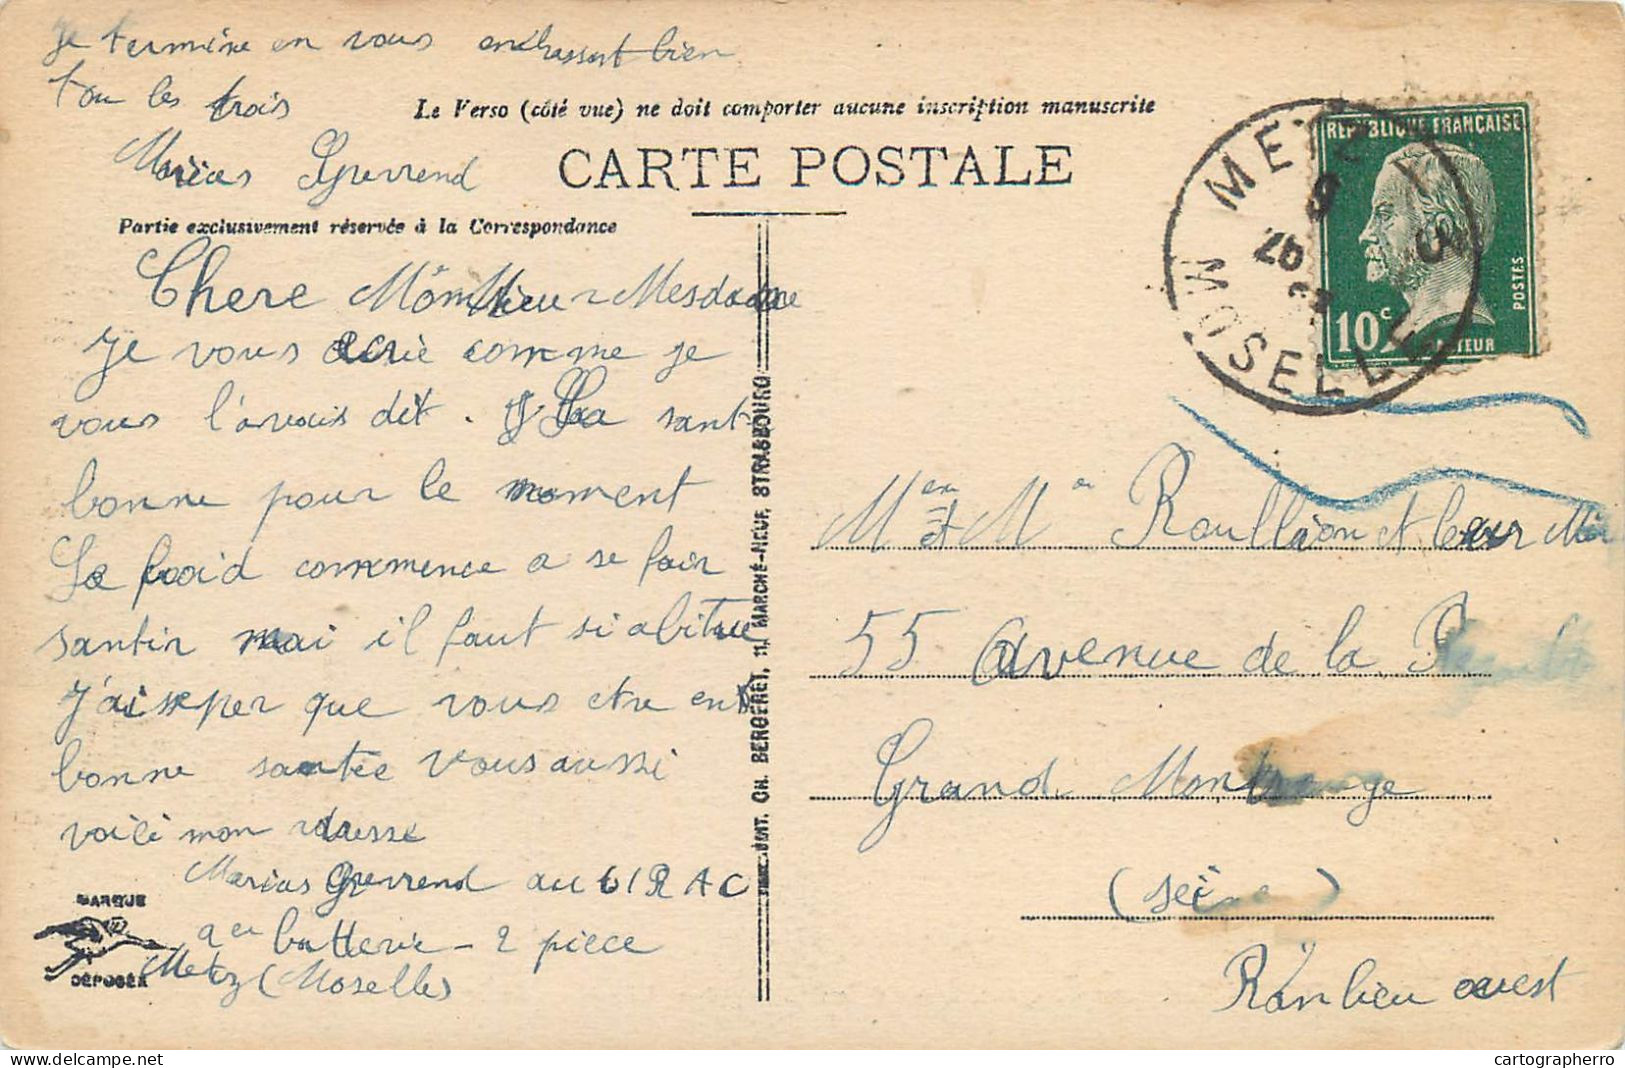 je termine en vous embrassant bien
tou les trois
Le Verso (côté vue) ne doit comporter aucune inscription manuscrite
Marius Gverrend
CARTE POSTALE
Partie exclusivement réservée à la Correspondance
Chere Monsieur Mesdame
Je vous écrie comme je
vous l'avais dit. La santé
bonne pour le moment
Le froid commence a se fair
santir mai il faut si abitue
J'aisper que vous etre en
bonne santée vous aussi
voici mon adresse
Marius Gverrend au 61 R A C
batterie - 2 pièce
Metz (Moselle)
MARQUE
DÉPOSÉE
CH. BERGERET, 11, MARCHÉ-NEUF, STRASBOURG
METZ
MOSELLE
RÉPUBLIQUE FRANÇAISE
POSTES
10c
PASTEUR
et M Roullion et leur
55 Avenue de la
Grand Montrouge
(seine)
Banlieu ouest
cartographerro